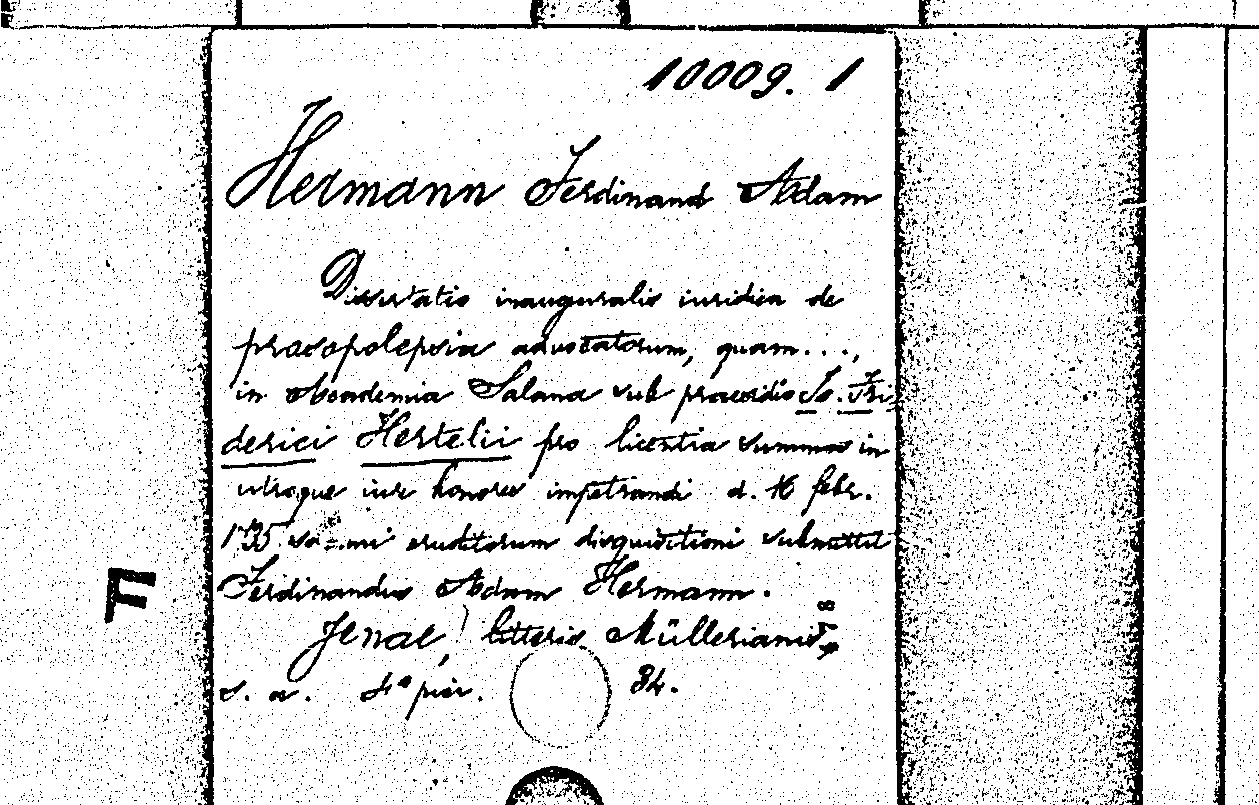 10009. 1
Hermann Ferdinand Adam
Dissertatio inauguralis iuridica de
prosopolepsia advocatorum, quam...,
in Academia Salana sub praesidio Jo. Fri
derici Hertelii pro licentia summos in
utroque iure honores impetrandi d. 16 febr.
1735 eruditorum disquisitioni submittit
Ferdinandus Adam Hermann.
F
Jenae, litteris Müllerianis
s. a. 4° pior. 34.